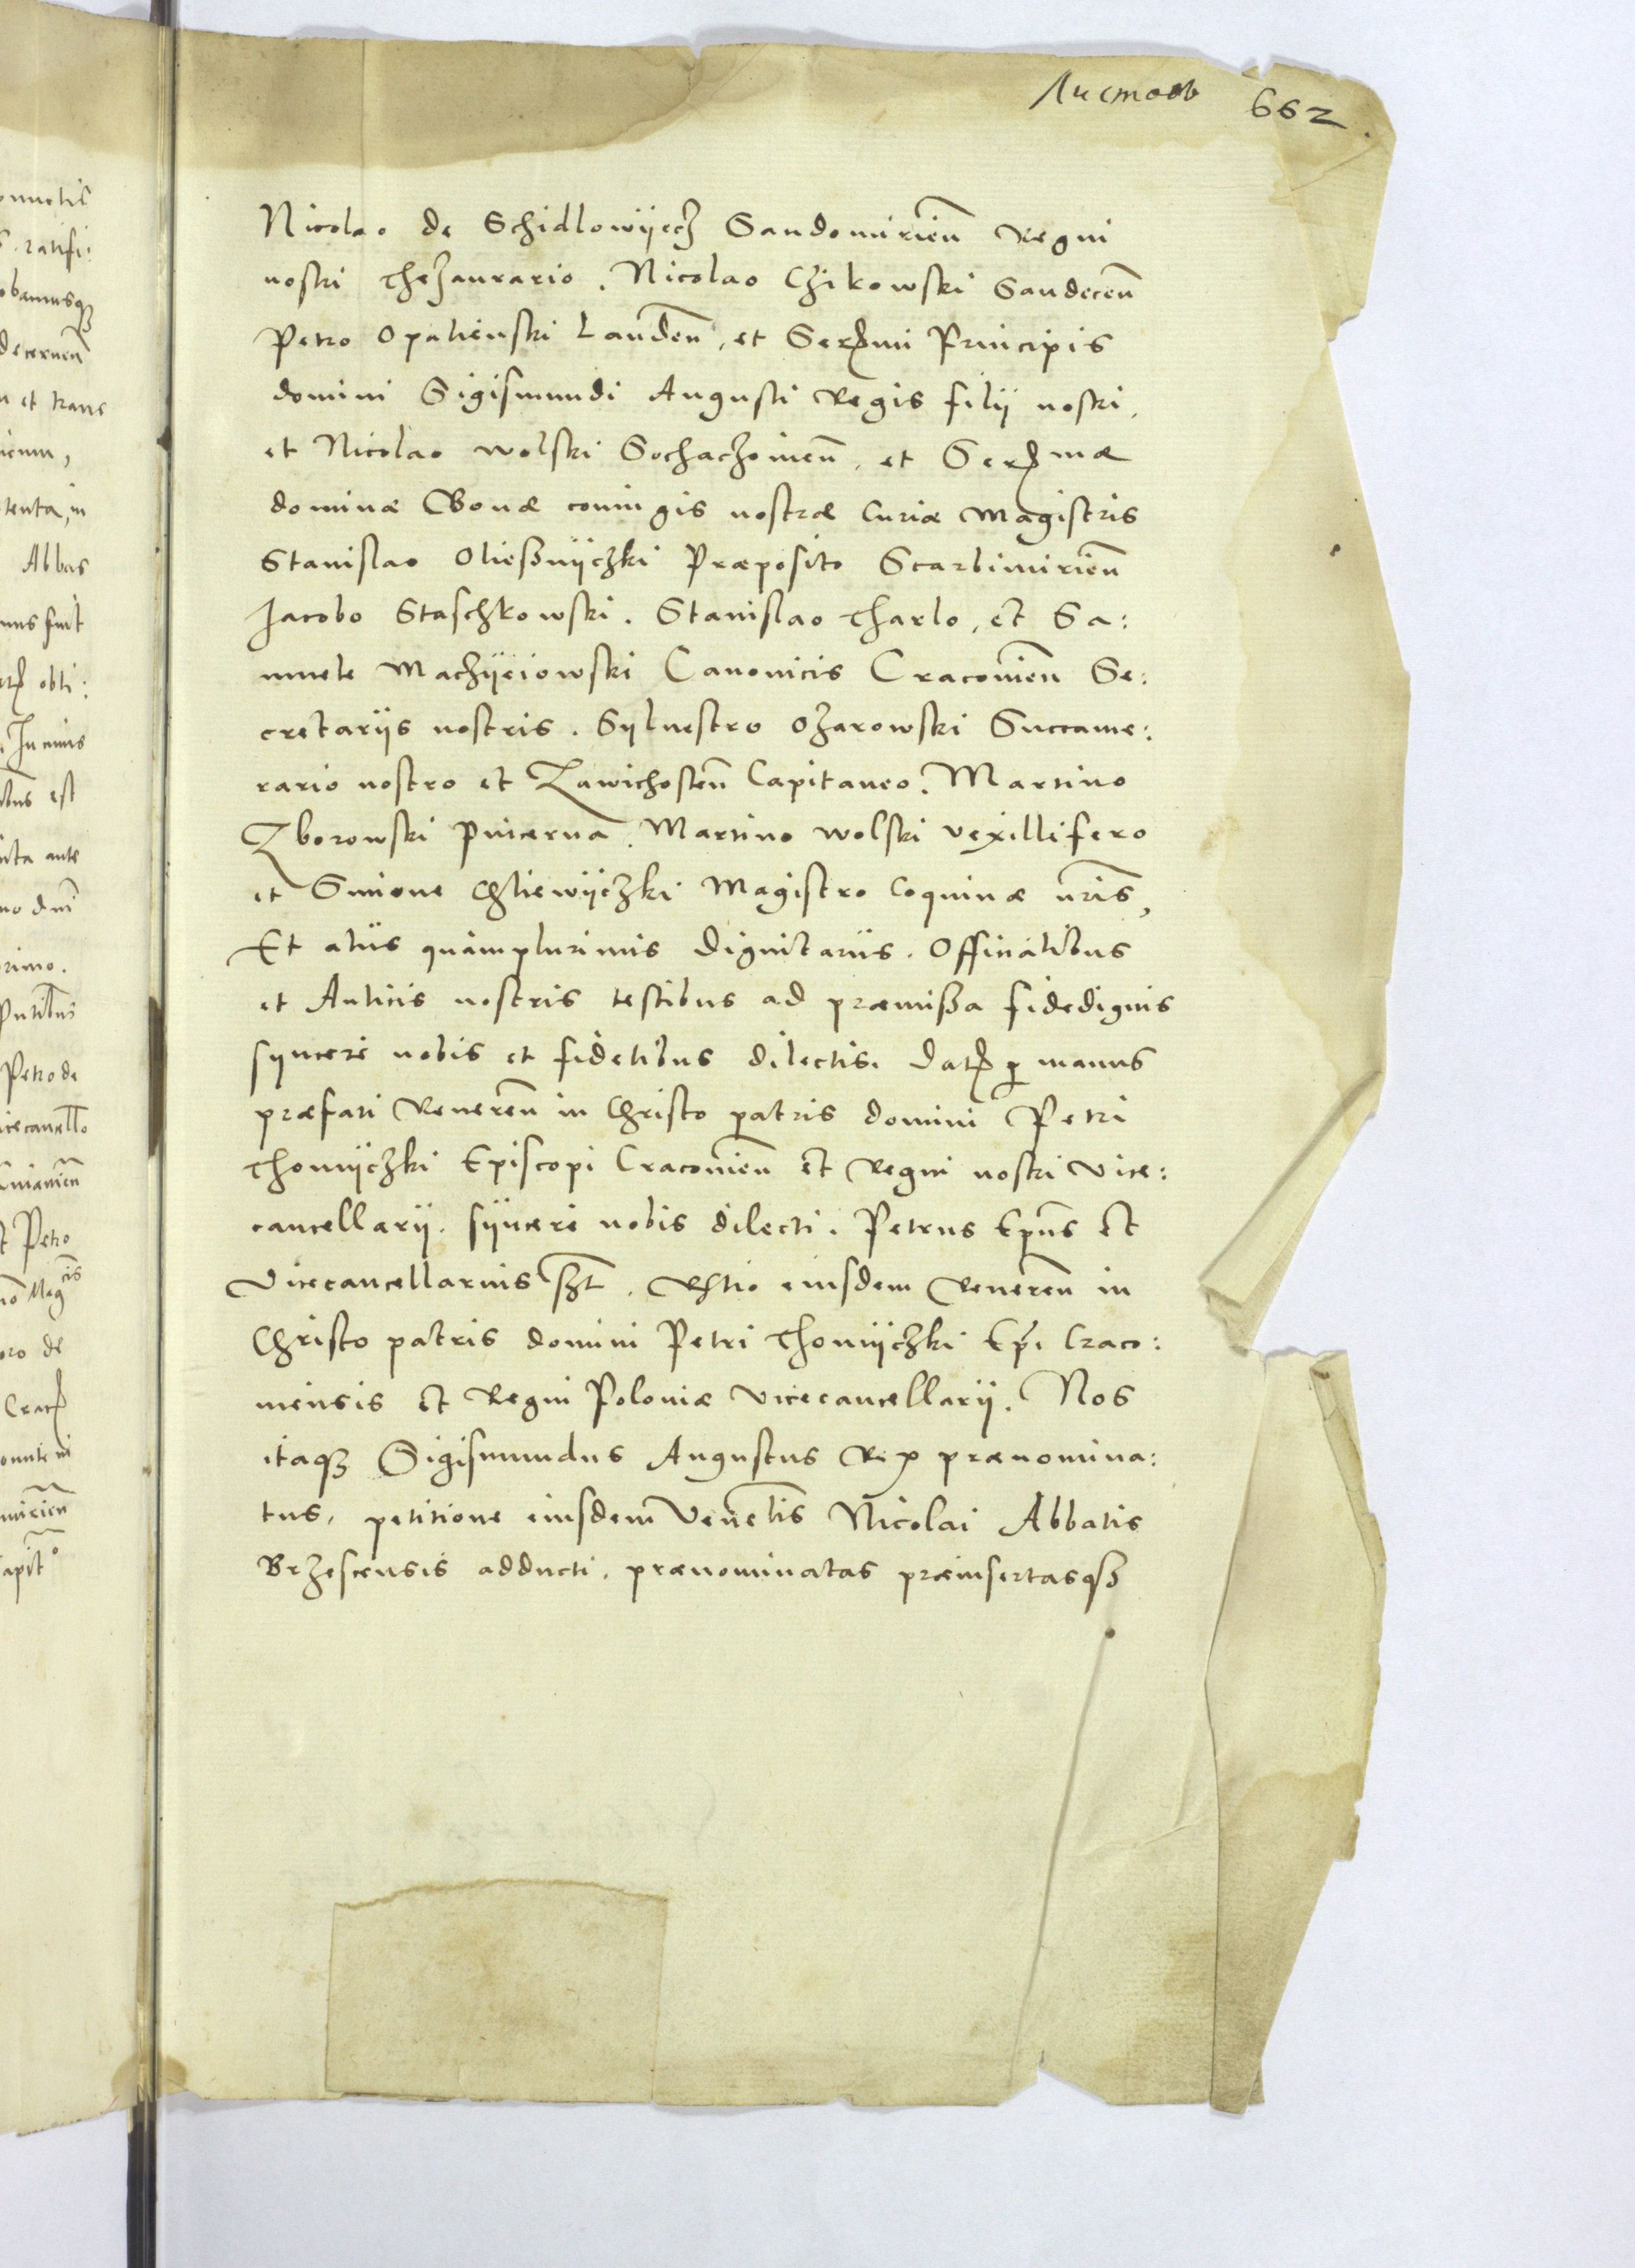 Листовъ 662.
Nicolao de Schidlowÿecz Sandomirien̄ Regni
nostri Thezaurario. Nicolao Czikowski Sandecen̄
Petro Opalienski Landen̄, et Sermi Principis
domini Sigismundi Augusti Regis filij nostri,
et Nicolao Wolski Sochaczovien̄, et Sermæ
dominæ Bonæ coniugis nostræ curiæ Magistris
Stanislao Oließnÿczki Præposito Scarbimirien̄
Jacobo Staschkowski. Stanislao Tharlo, et Sa:
muele Maczÿeiowski Canonicis Cracovien̄ Se:
cretariis nostris. Sylvestro Ozarowski Succame:
rario nostro et Zawichosten̄ Capitaneo. Martino
Zborowski Pincerna. Martino Wolski vexillifero
et Simone Chliewÿczki Magistro coquinæ nr̄is,
Et aliis quamplurimis Dignitariis. Officialibus
et Aulicis nostris testibus ad præmißa fidedignis
syncere nobis et fidelibus dilectis. Dat p manus
præfati Reveren̄ in Christo patris domini Petri
Thomÿczki Episcopi Cracovien̄ et Regni nostri Vice:
cancellarij. sÿncere nobis dilecti. Petrus Ep̄us et
Vicecancellarius sszt. R̄ltio eiusdem Reveren̄ in
Christo patris domini Petri Thomÿczki Ep̄i Craco:
viensis et Regni Poloniæ Vicecancellarij. Nos
itaqz Sigismundus Augustus Rex prænomina:
tus, petitione eiusdem Ven̄elis Nicolai Abbatis
Brzescensis adducti, prænominatas præinsertasqz